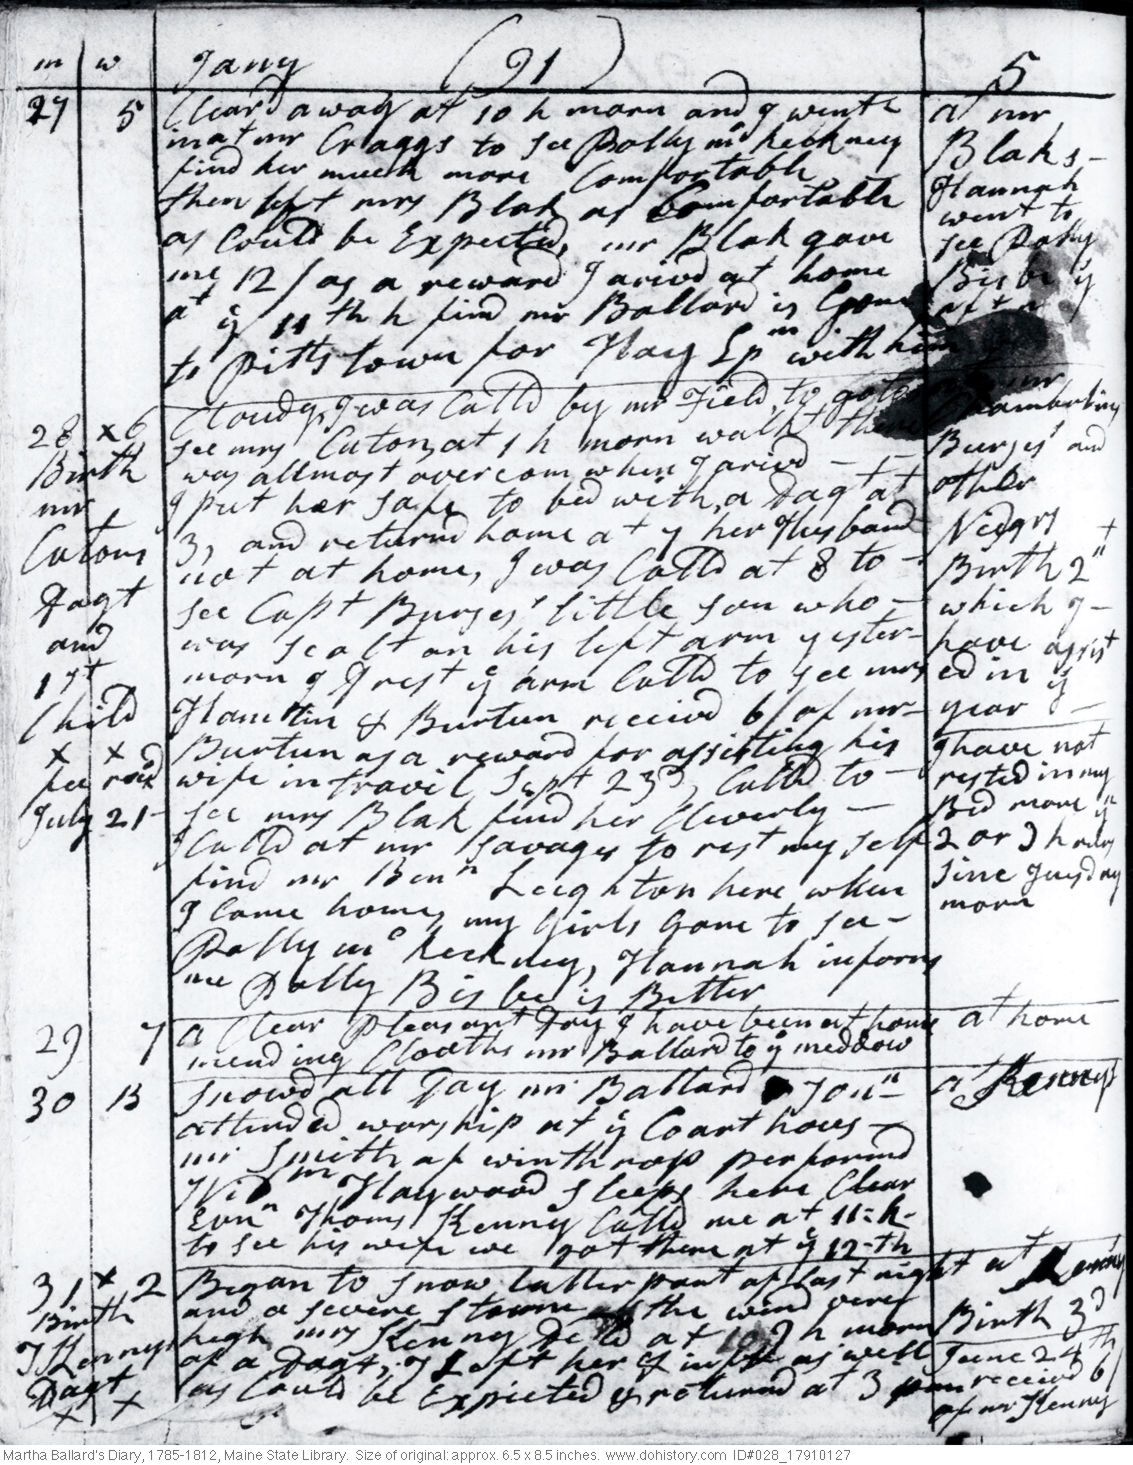 m w Jany (91) 5
27 5 Cleard away at 10 h morn and I went
in at mr Craggs to see Polly mc heckney
find her much more Comfortable
then left mrs Blak as Comfortable
as Could be Expected, mr Blak gave
me 12/ as a reward I arivd at home
at ye 11th h find mr Ballard is Gone
to Pittstown for Hay Epm with him
at mr
Blaks -
Hannah
went to
see Polly
Bisbe ys
aftn
28 x 6
Birth
mr
Catons
Dagt
and
1st
Child
x x
fee recd
July 21 -
Cloudy, I was Calld by mr Field to go to
see mrs Caton, at 1 h morn walkt there
was allmost overcom when I arivd - -
I put her safe to bed with a Dagt at
3, and returnd home at 7 her Husband
not at home, I was Calld at 8 to -
see Capt Burges' little son who -
was scalt on his left arm yester-
morn I Drest ye arm Calld to see mrs
Hamttin & Burtun receivd 6/ of mr -
Burtun as a reward for assisting his
wife in travil Sept 23d, Calld to -
see mrs Blak find her Cleverly -
I Calld at mr Savages to rest my self
find mr Benn Leighton here when
I Came home, my Girls Gone to see -
Polly mc heckney, Hannah informs
me Polly Bisbe is Better
at mr
Chamberlins
Burges' and
other
Neighrs
Birth 2n
which I -
have assist
ed in ys
year -
I have not
rested in my
Bed more yn
2 or 3 h
sine Tuesday
morn
29 7 a Clear Pleasant Day I have been at home at home
mending Cloaths mr Ballard to ye meddow
30 B Snowd all Day mr Ballard Jonn at Kennys
attended worship at ye Coart hous -
mr Smith of winthrop performd
Wid m Haywood Sleeps here Clear
Evnn Thoms Kenny Calld me at 11=h-
to see his wife we got there at ye 12=th
31 x 2
Birth
T Kennys
Dagt
x x
Began to snow latter part of last night at Kennys
and a severe storme the wind very
high mrs Kenny Delld at 10 h morn
of a Dagt, I Left her & inft as well
as Could be Expected & returnd at 3 pm
Birth 3d
June 24th
receivd 6/
of mr Kenny